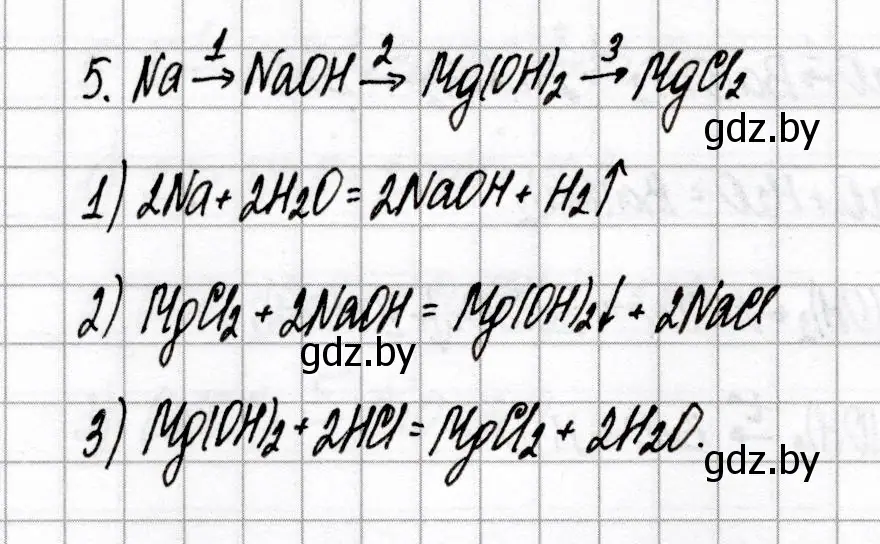 5. Na →1 NaOH →2 Mg(OH)₂ →3 MgCl₂
gdz.by
1) 2Na + 2H₂O = 2NaOH + H₂↑
2) MgCl₂ + 2NaOH = Mg(OH)₂↓ + 2NaCl
gdz.by
3) Mg(OH)₂ + 2HCl = MgCl₂ + 2H₂O.
gdz.by